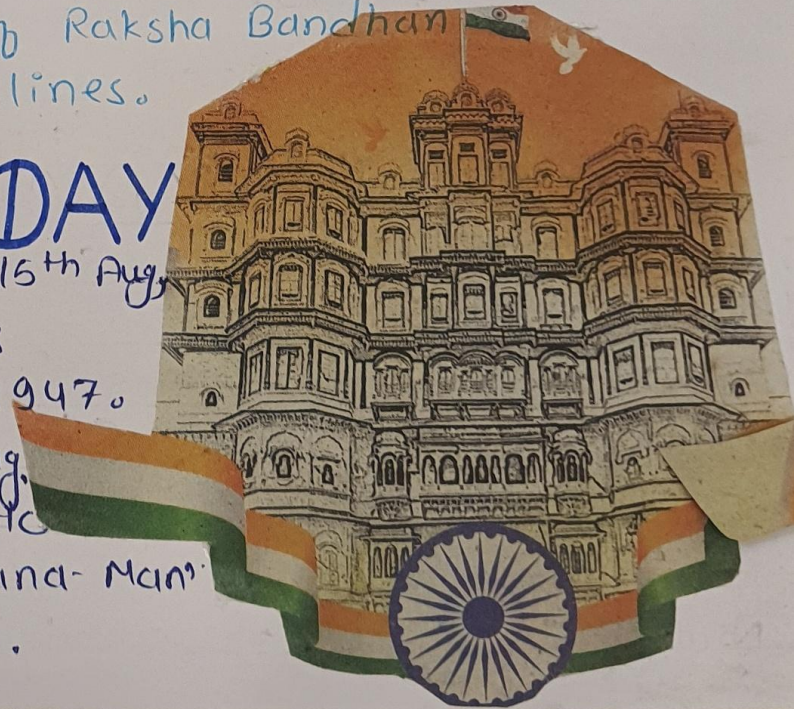 Raksha Bandhan
lines.
DAY
15th Aug,
947.
g.
ana- Man
.